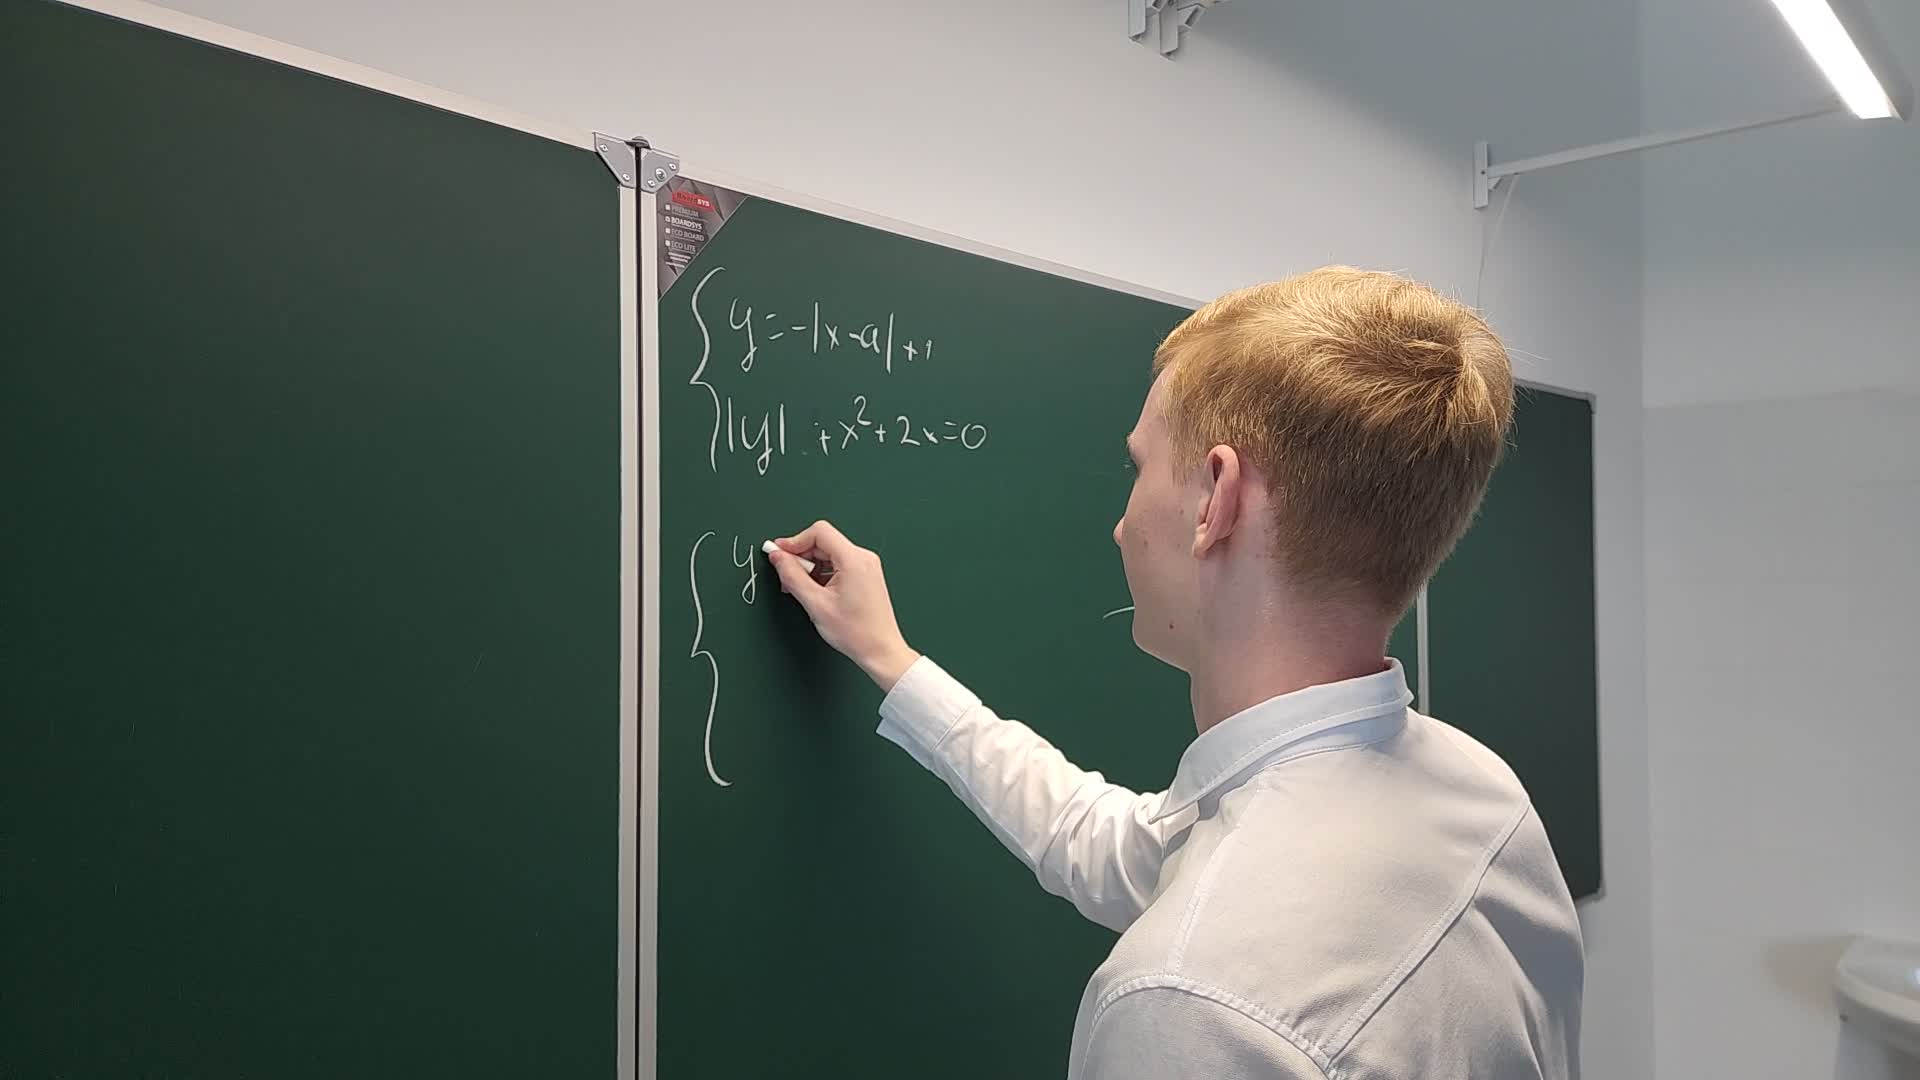 SYS
PREMIUM
BOARDSYS
ECO BOARD
ECO LITE
y = -|x - a| + 1
|y| + x² + 2x = 0
y